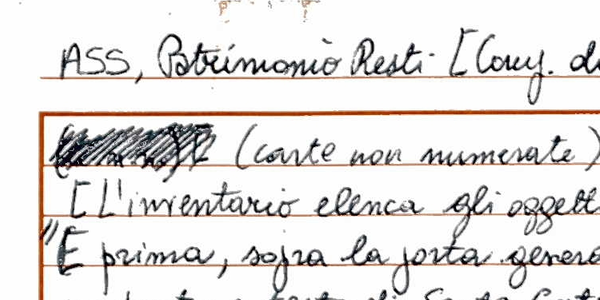 ASS, Patrimonio Resti [Cong. d
(carte non numerate)
[L'inventario elenca gli oggett
"E prima, sopra la porta genera